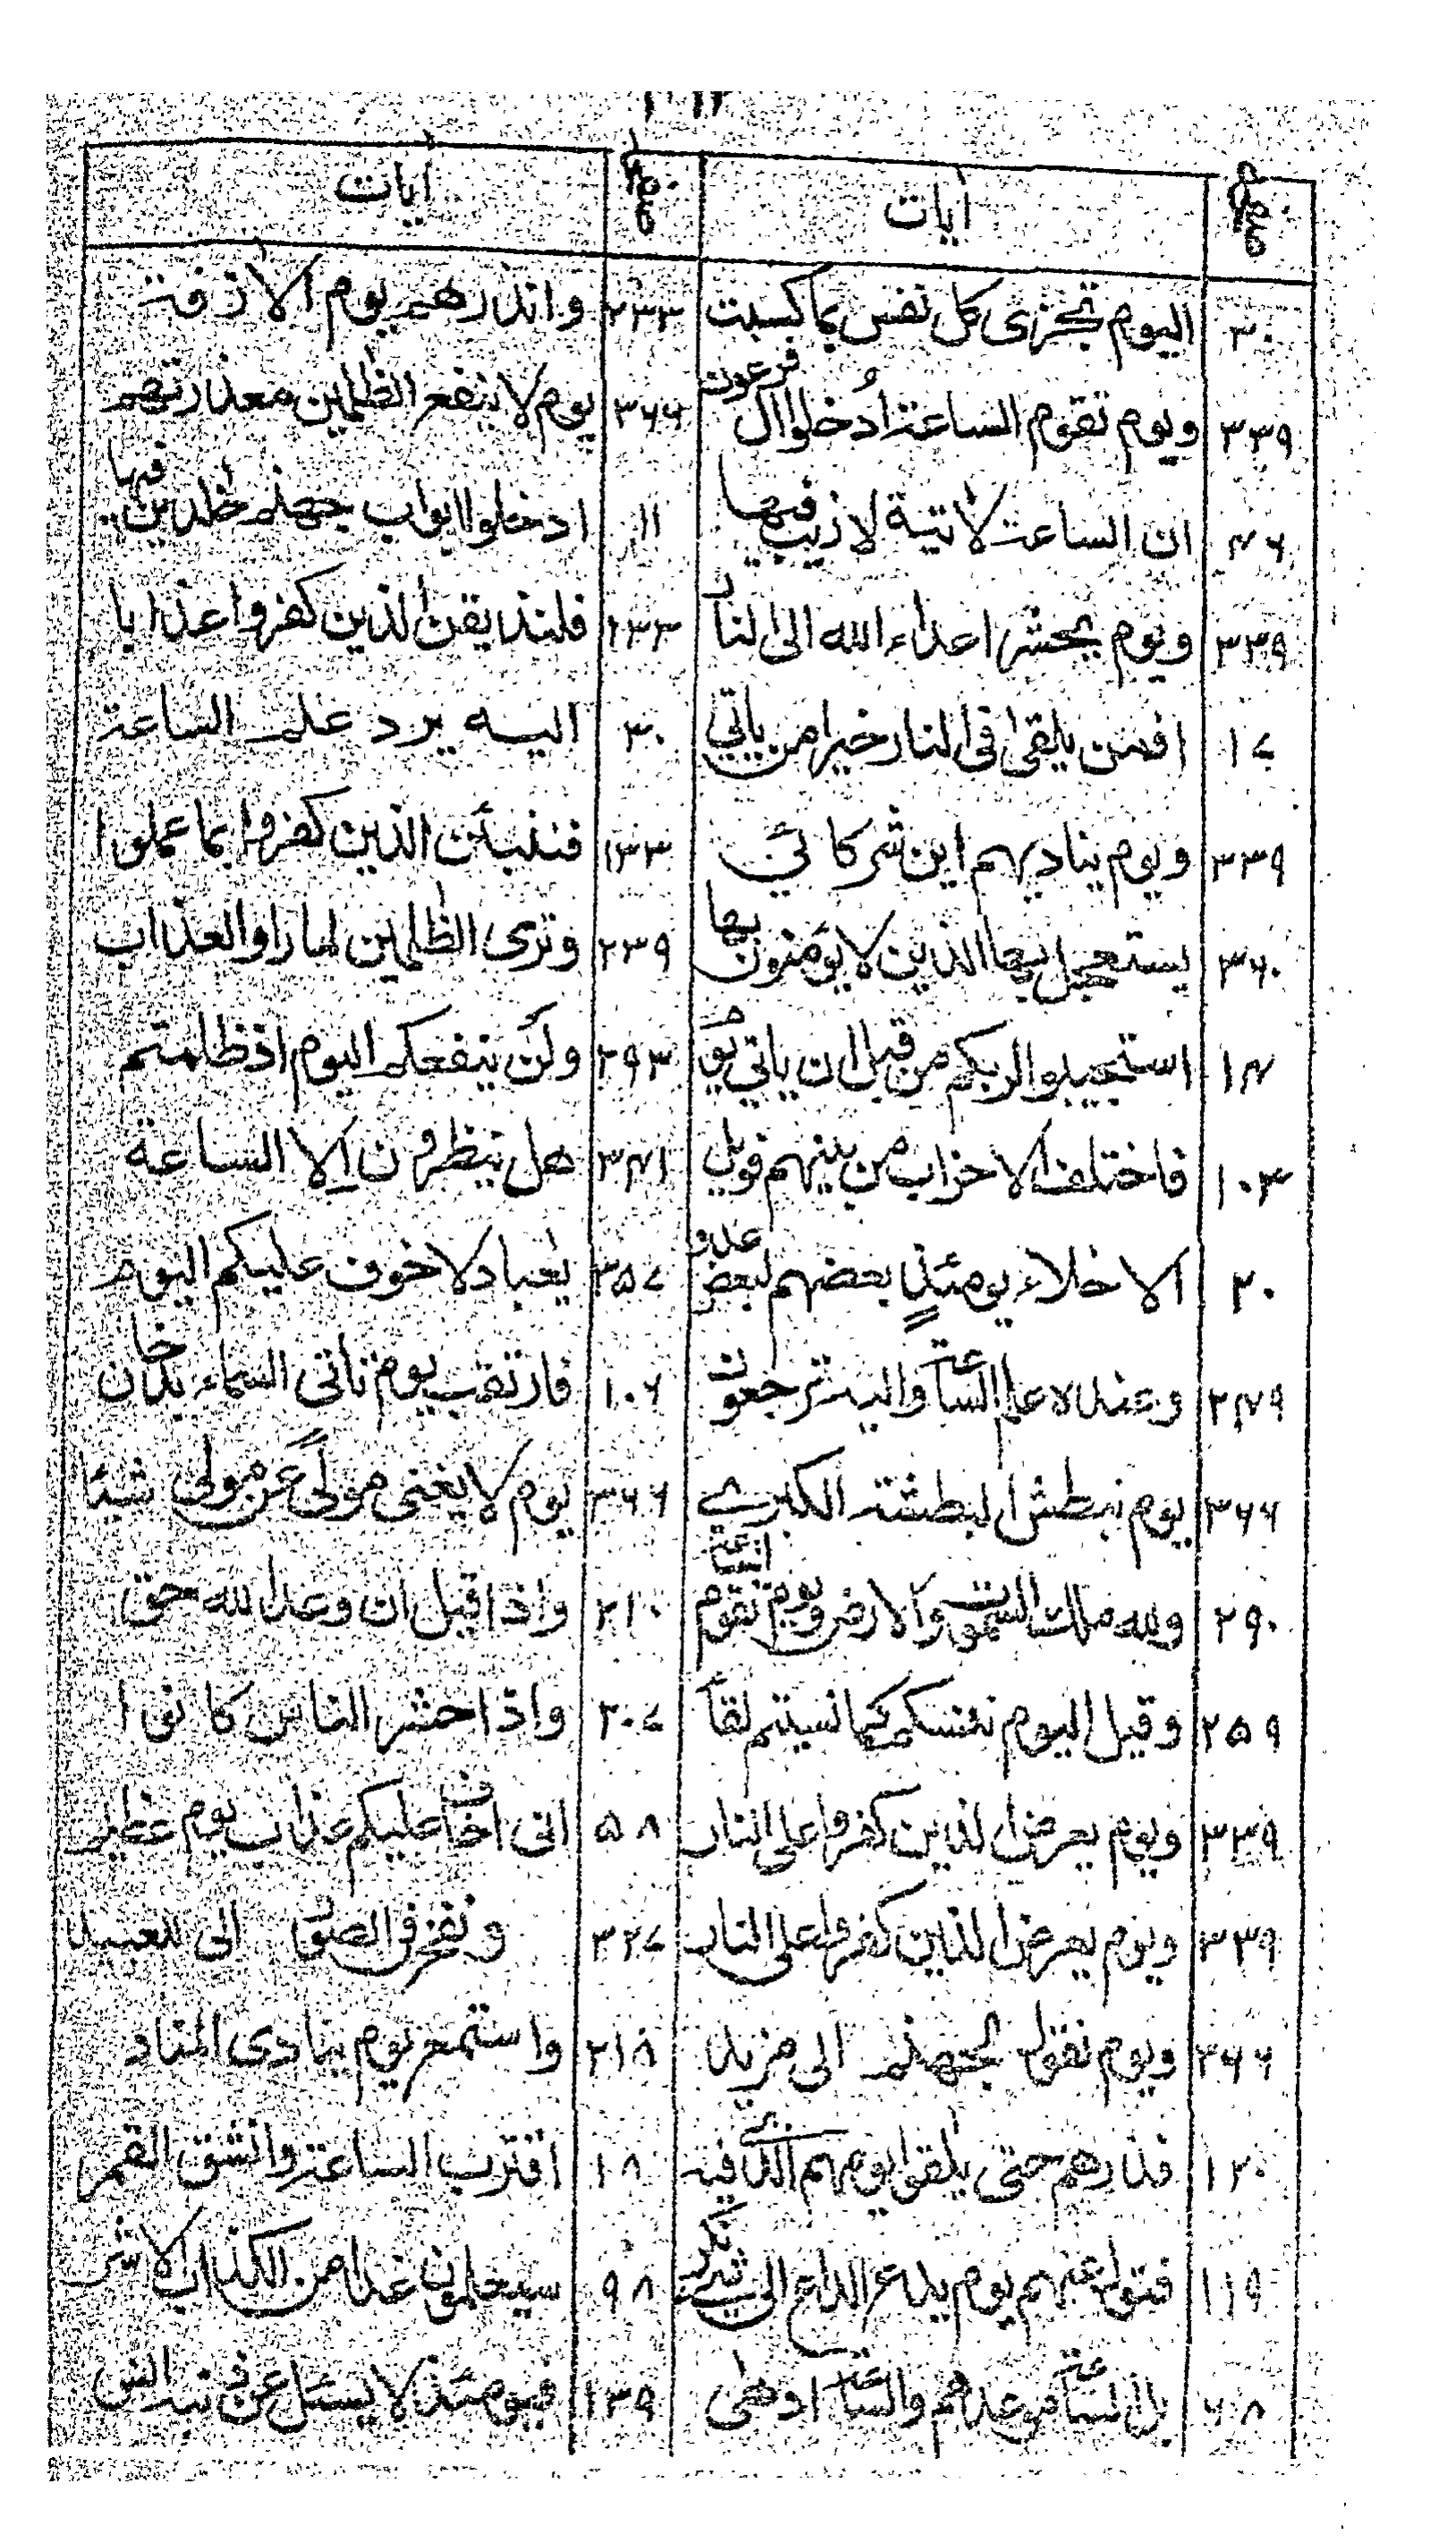 صفحہ | آیات | صفحہ | آیات
۳۰ | الیوم تجزی کل نفس بما کسبت | ۲۳۳ | وانذرهم یوم الازفة
۳۳۹ | ویوم تقوم الساعة ادخلوا ال فرعون | ۳۶۶ | یوم لا ینفع الظلمین معذرتهم
۴۶ | ان الساعة لاتیة لا ریب فیها | ۱۱ | ادخلوا ابواب جهنم خلدین فیها
۳۳۹ | ویوم یحشر اعداء الله الی النار | ۱۳۳ | فلنذیقن الذین کفروا عذابا
۱۷ | افمن یلقی فی النار خیر امن یاتی | ۳۰ | الیه یرد علم الساعة
۳۳۹ | ویوم ینادیهم این شرکائی | ۱۳۳ | فننبئن الذین کفروا بما عملوا
۳۶۰ | یستعجل بها الذین لا یؤمنون بها | ۲۳۹ | وتری الظلمین لما راوا العذاب
۱۴ | استجیبوا لربکم من قبل ان یاتی یوم | ۲۹۳ | ولن ینفعکم الیوم اذ ظلمتم
۱۰۳ | فاختلف الاحزاب من بینهم فویل | ۳۴۱ | هل ینظرون الا الساعة
۲۰ | الاخلاء یومئذٍ بعضهم لبعض عدو | ۳۵۷ | یٰعباد لا خوف علیکم الیوم
۲۴۹ | وعنده علم الساعة والیه ترجعون | ۱۰۶ | فارتقب یوم تاتی السماء بدخان
۳۶۶ | یوم نبطش البطشة الکبرے | ۳۶۶ | یوم لا یغنی مولًی عن مولی شیئا
۲۹۰ | ولله ملک السموت والارض ویوم تقوم الساعة | ۲۱۰ | واذا قیل ان وعد الله حق
۲۵۹ | وقیل الیوم ننسکم کما نسیتم لقآ | ۲۰۷ | واذا حشر الناس کانوا
۳۳۹ | ویوم یعرض الذین کفروا علی النار | ۵۸ | انی اخاف علیکم عذاب یوم عظیم
۳۳۹ | ویوم یعرض الذین کفروا علی النار | ۳۲۷ | ونفخ فی الصور الی للعبید
۳۶۶ | ویوم نقول لجهنم الی مزید | ۲۱۸ | واستمع یوم ینادی المناد
۱۲۰ | فذرهم حتی یلقوا یومهم الذی فیه | ۱۸ | اقترب الساعة وانشق القمر
۱۱۹ | فتول عنهم یوم یدع الداع الی شیء نکر | ۹۸ | سیعلمون غدا من الکذاب الاشر
۶۸ | بل الساعة موعدهم والساعة ادهی | ۱۳۹ | فیومئذ لا یسئل عن ذنبه انس